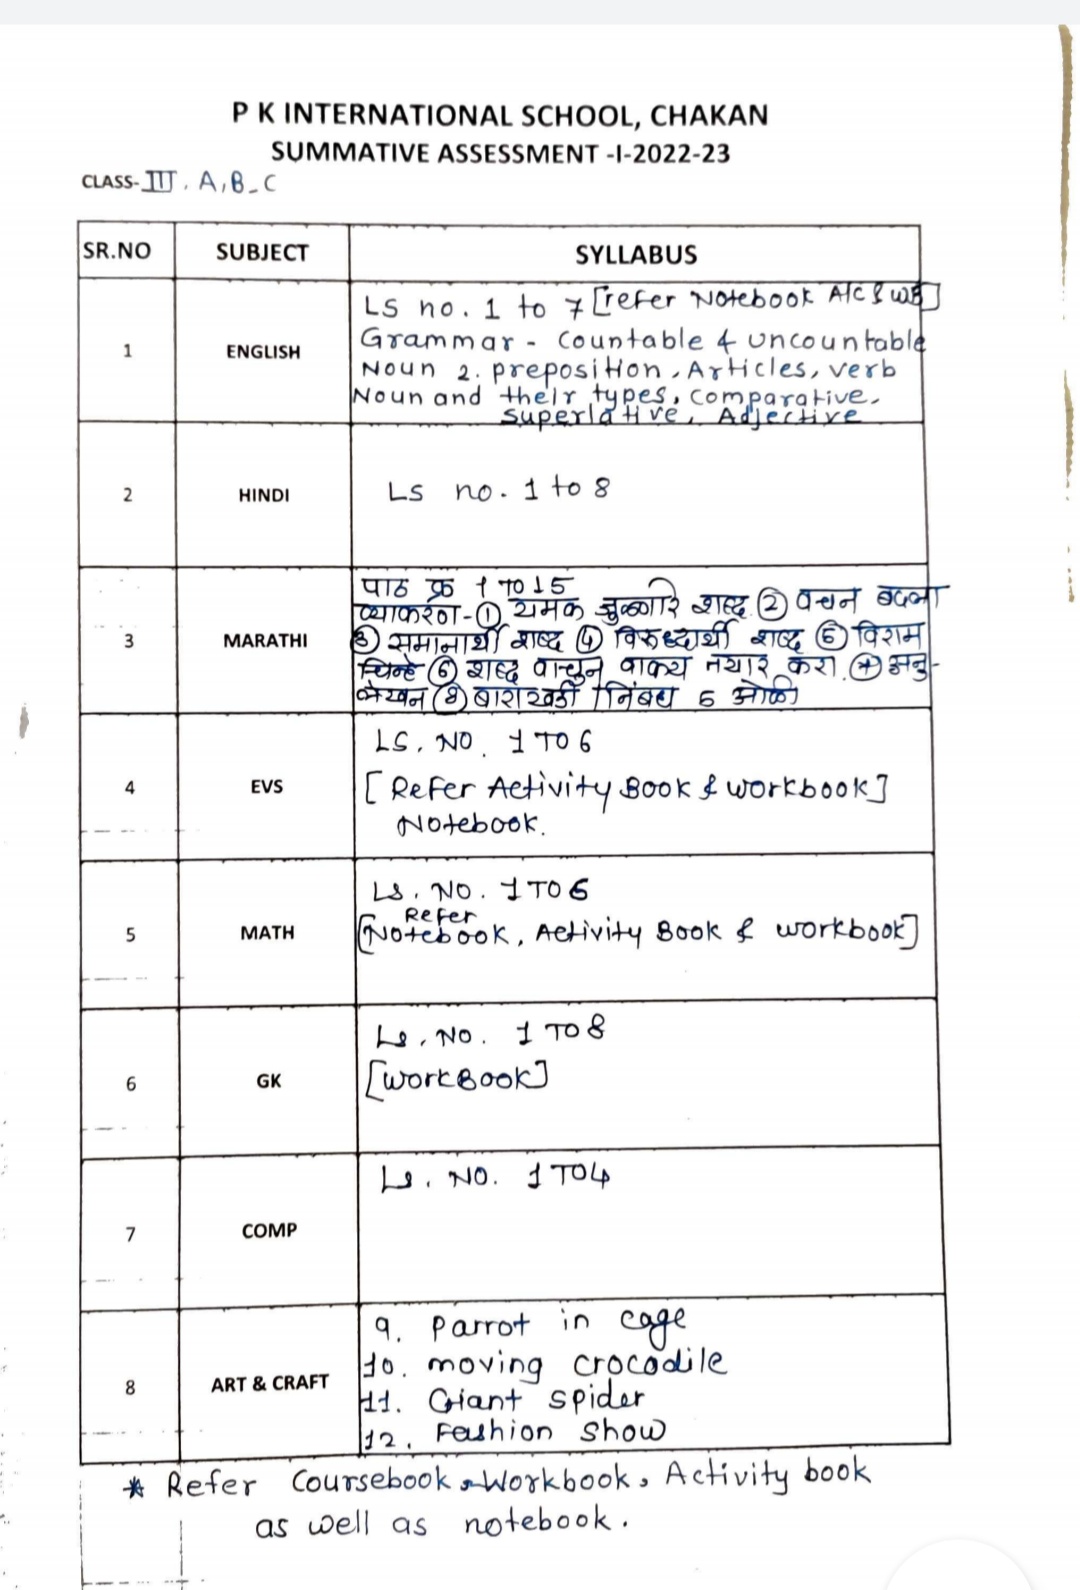 P K INTERNATIONAL SCHOOL, CHAKAN
SUMMATIVE ASSESSMENT -I-2022-23
CLASS- III . A, B - C
SR.NO SUBJECT SYLLABUS
1 ENGLISH
LS no. 1 to 7 [refer Notebook A/c & WB]
Grammar - Countable & uncountable
Noun 2. preposition, Articles, verb
Noun and their types, comparative,
superlative, Adjective
2 HINDI LS no. 1 to 8
3 MARATHI
पाठ क्र 1 TO 15
व्याकरण- ① यमक जुळणारे शब्द ② वचन बदला
③ समानार्थी शब्द ④ विरुध्दार्थी शब्द ⑤ विराम
चिन्हे ⑥ शब्द वाचुन वाक्य तयार करा. ⑦ अनु-
लेखन ⑧ बाराखडी निबंध 5 ओळी
4 EVS
LS. NO. 1 TO 6
[Refer Activity Book & workbook]
Notebook.
5 MATH
LS. NO. 1 TO 6
Refer
[Notebook, Activity Book & workbook]
6 GK
Ls. NO. 1 TO 8
[workBook]
7 COMP
Ls. NO. 1 TO 4
8 ART & CRAFT
9. Parrot in cage
10. moving crocodile
11. Giant spider
12. Fashion show
* Refer Coursebook, Workbook, Activity book
as well as notebook.